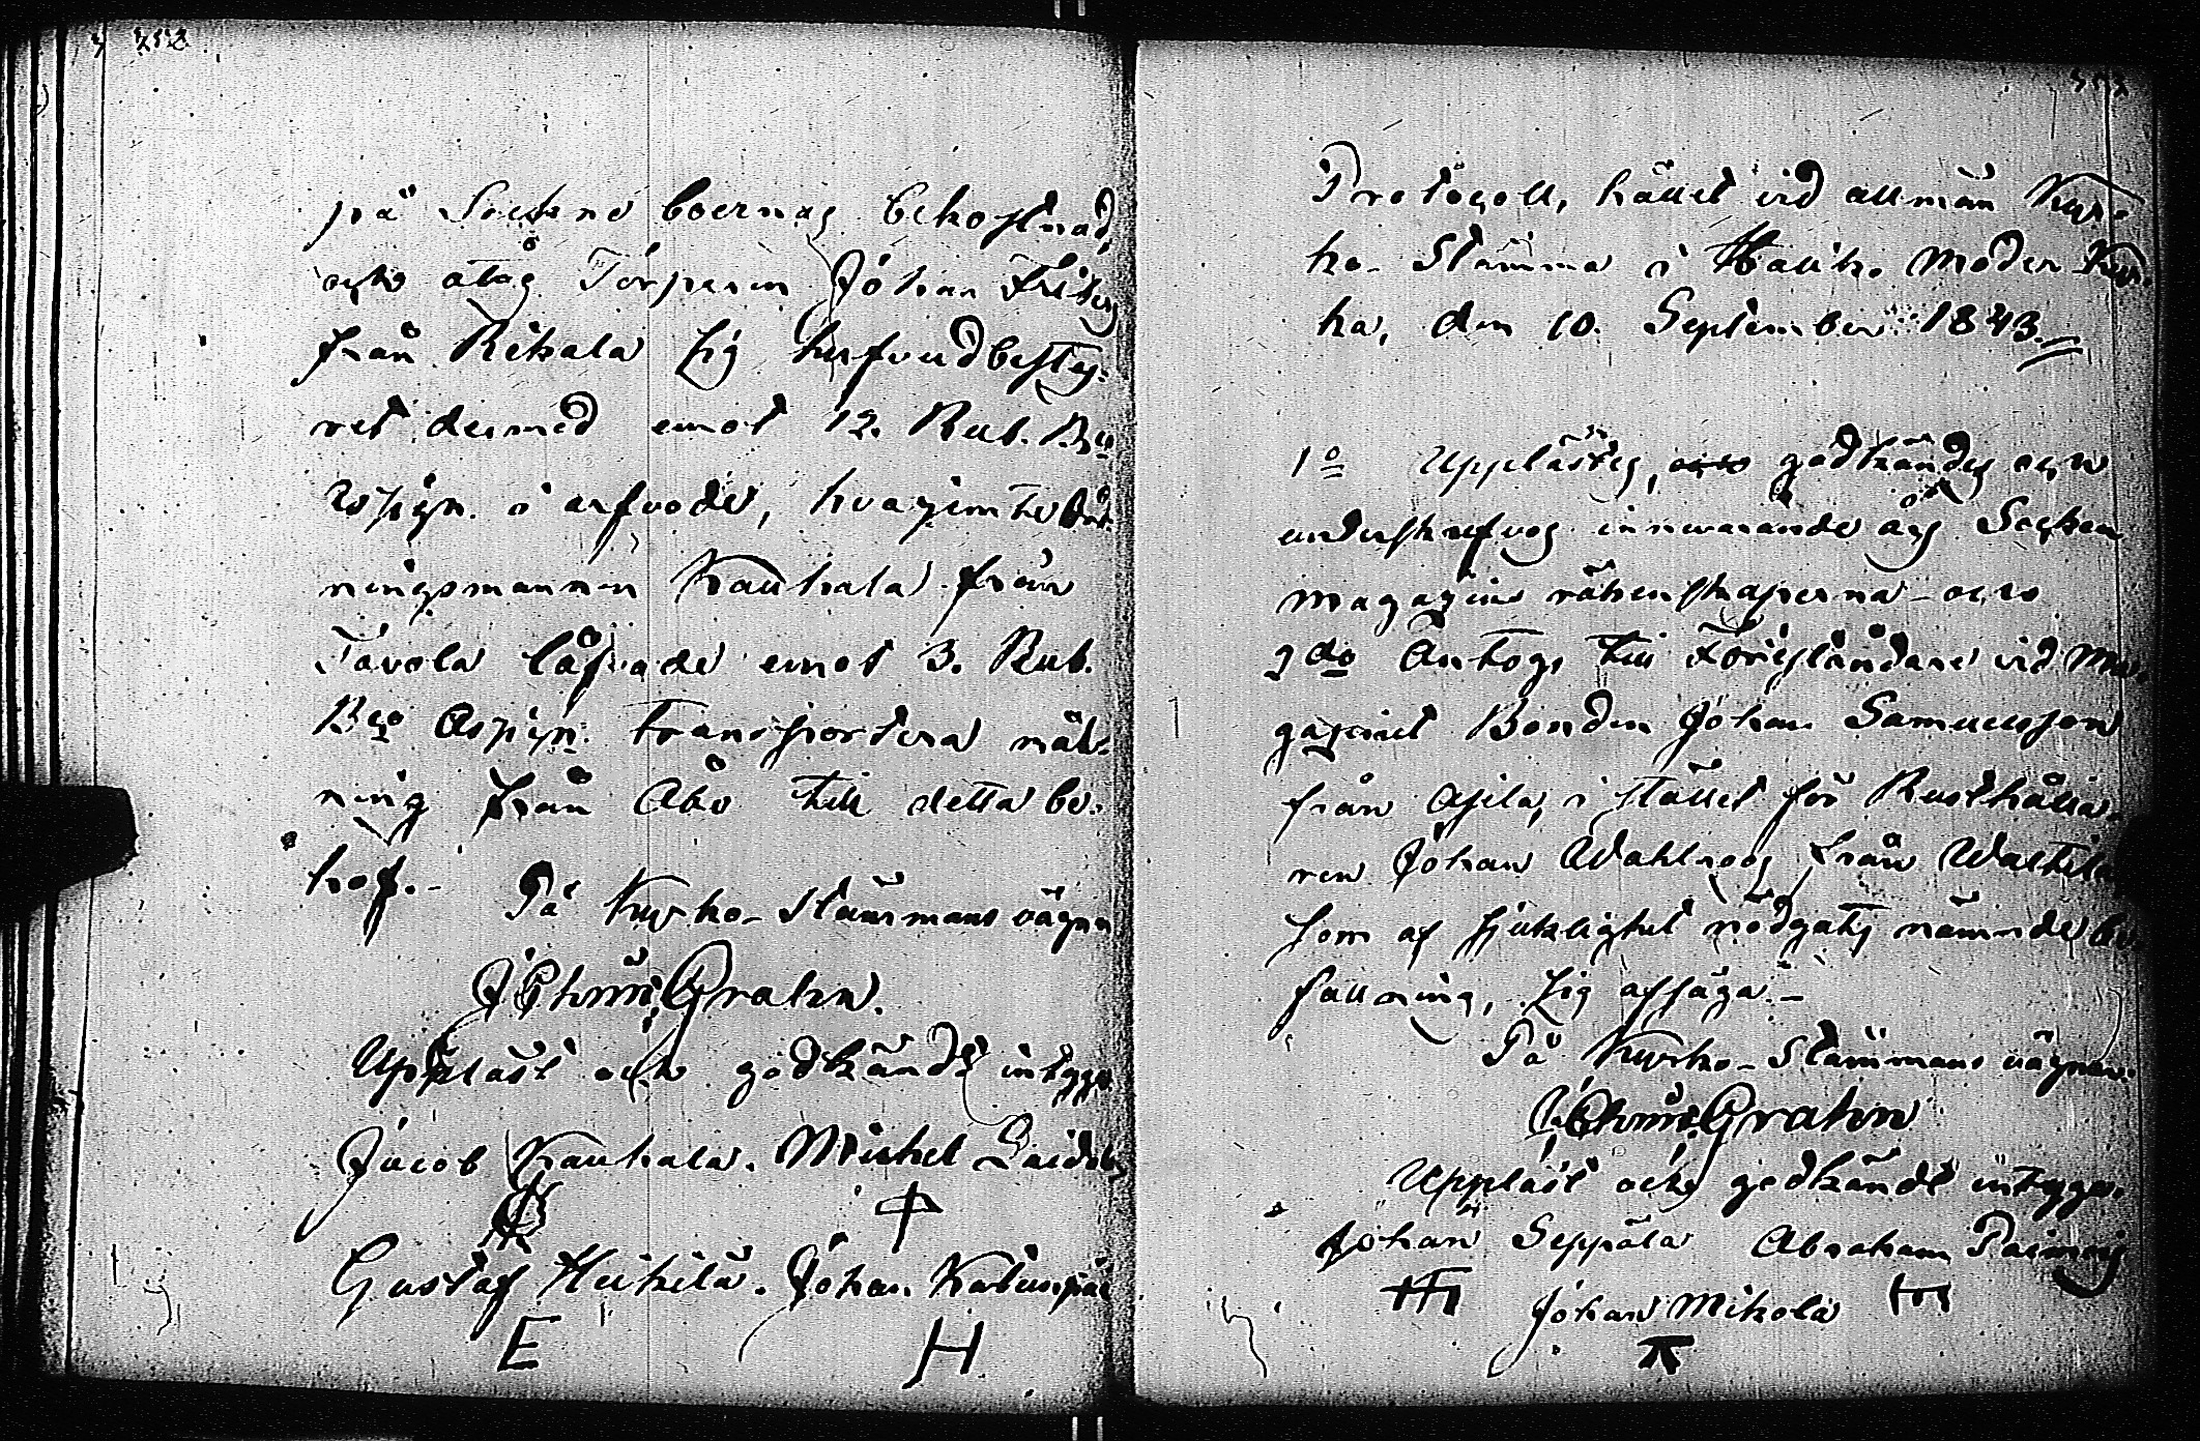 252
på Sockne boernas bekostnad,
och åtog Torparen Johan Friberg
från Rikala sig hufvudbesty-
ret dermed emot 12. Rub. Bco
Assign. i arfvode, hvarjemte
ningsmannen Kauhala från
Tavola låfvade emot 3. Rub.
Bco Assign. transportera mål-
ning från Åbo till detta be-
hof.- På Kyrko-Stämmans vägnar
Grahn.
Uppläst och godkändt intyga
Jacob Kauhala. Michel
Gustaf Heikilä. Johan
E H
Protocoll, hållet vid allmän Kyr-
ko-Stämma i Halikko Moder Kyr-
ka, den 10. September 1843.
1o Upplästes, godkändes och
underskrefvos innevarande års Socken
Magazins räkenskaperna - och
2do Antogs till Föreståndare vid Ma-
gazinet Bonden Johan Samuelsson
från i stället för Rusthålla-
ren Johan Wahlroos från
som af sjuklighet nödgats nämnde be-
fattning, sig afsäga.-
På Kyrko-Stämmans vägnar.
Grahn
Uppläst och godkändt intyga.
Johan Seppälä Abraham
Johan Mikola